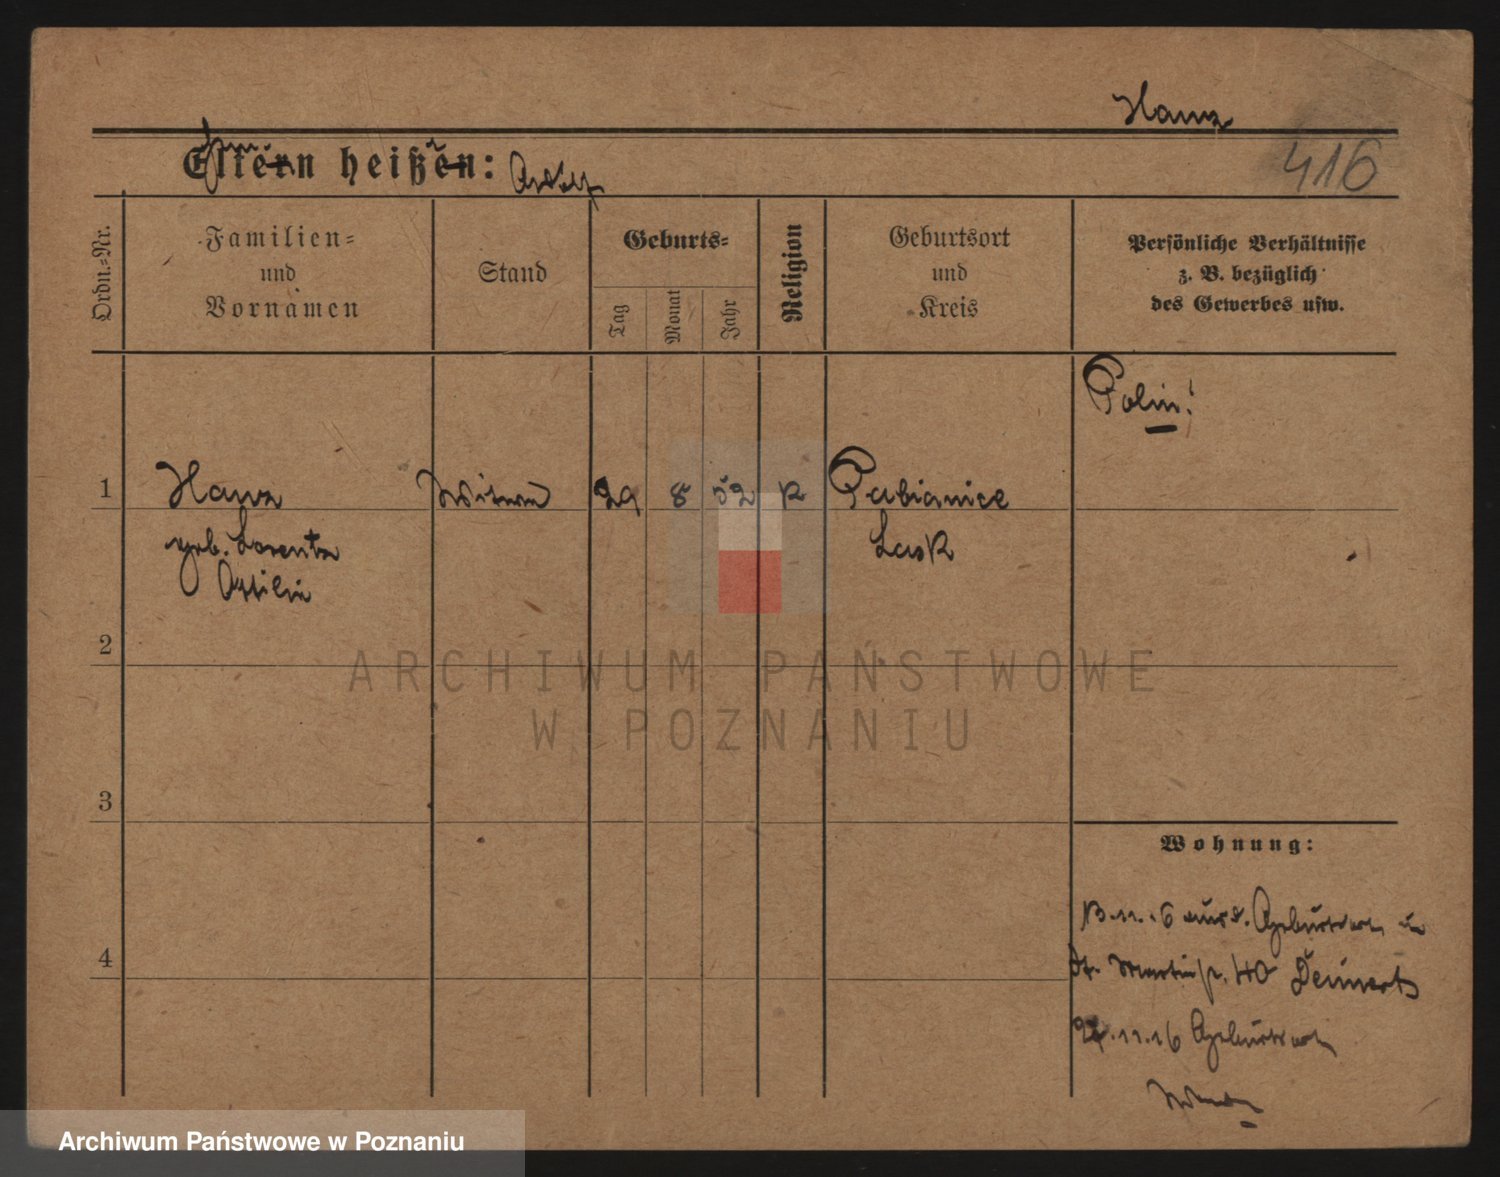 Hanz
416
Eltern heißen: Adolf
Ordn.-Nr.
Familien-
und
Vornamen
Stand
Geburts-
Tag
Monat
Jahr
Religion
Geburtsort
und
Kreis
Persönliche Verhältnisse
z. B. bezüglich
des Gewerbes usw.
Polin!
1 Hanz Witwe 29 8 52 K Pabianice
geb. Lorentz Lask
Ottilie
2
3
4
Wohnung:
13.11.16 aus d. Geburtsort in
St. Martinstr. 40
.11.16 Geburtsort
ARCHIWUM PAŃSTWOWE
W POZNANIU
Archiwum Państwowe w Poznaniu